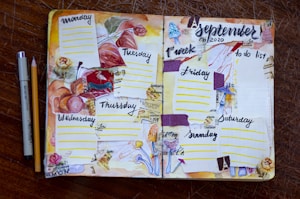 Monday
Tuesday
Wednesday
Thursday
September
2020
1 week
to do list
Friday
Saturday
Sunday